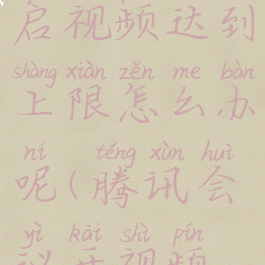 启视频达到
shàng xiàn zěn me bàn
上限怎么办
ní téng xùn huì
呢(腾讯会
yì kāi shì pín
议开视频